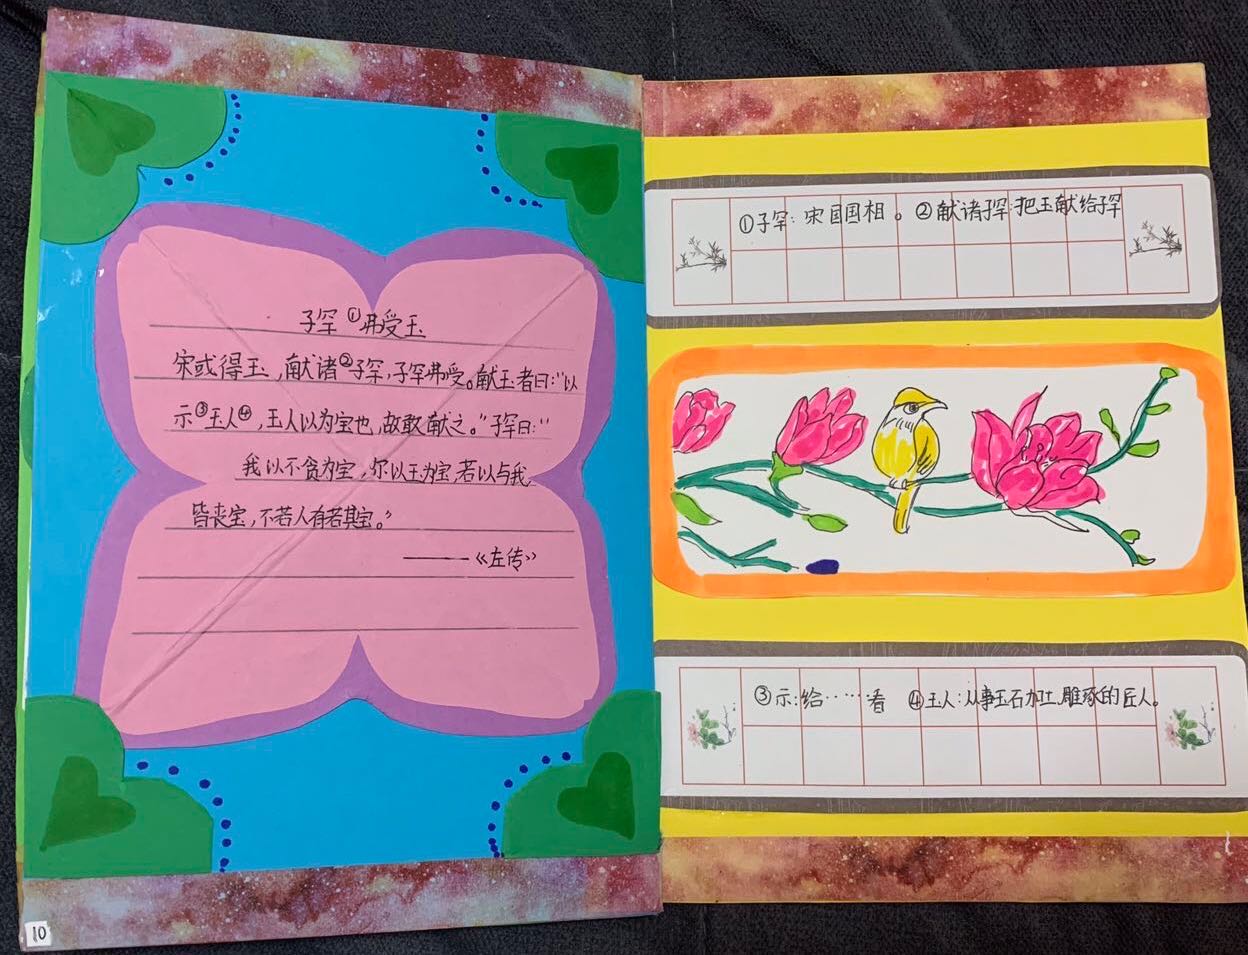 子罕①弗受玉
宋或得玉,献诸②子罕,子罕弗受。献玉者曰:“以
示③玉人④,玉人以为宝也,故敢献之。”子罕曰:“
我以不贪为宝,尔以玉为宝,若以与我,
皆丧宝,不若人有者其宝。”
——《左传》
10
①子罕:宋国国相。②献诸子罕:把玉献给子罕
③示:给……看 ④玉人:从事玉石加工雕琢的匠人。